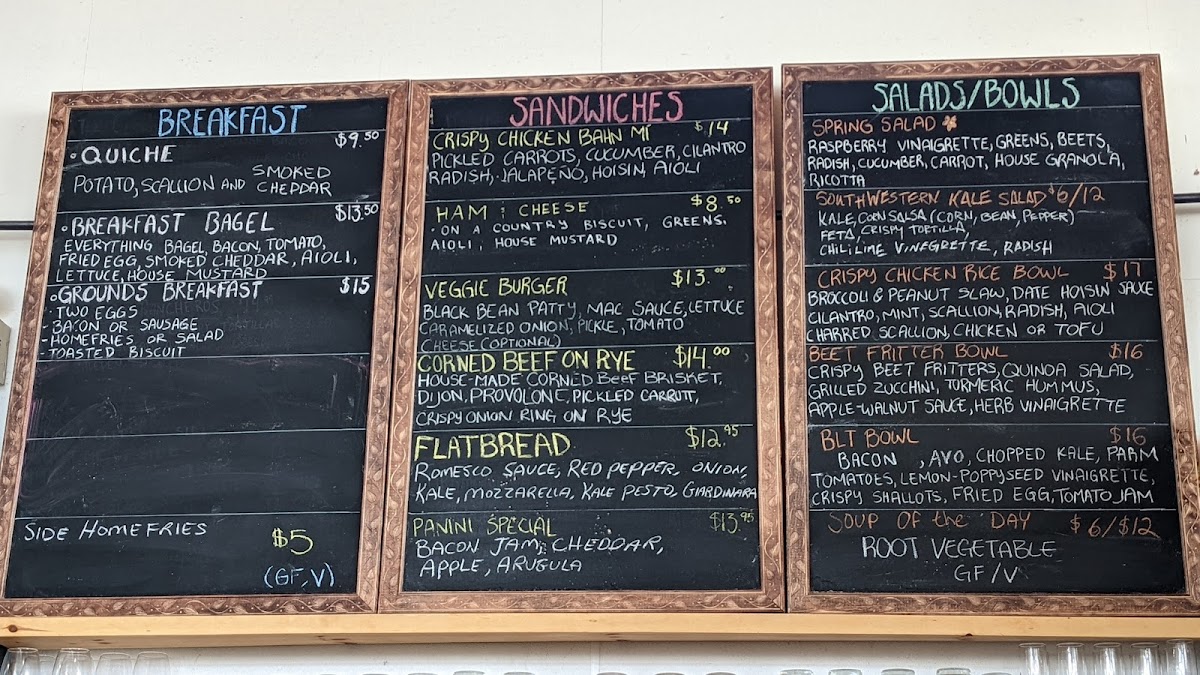 BREAKFAST
• QUICHE $9.50
POTATO, SCALLION AND SMOKED CHEDDAR
• BREAKFAST BAGEL $13.50
EVERYTHING BAGEL, BACON, TOMATO,
FRIED EGG, SMOKED CHEDDAR, AIOLI,
LETTUCE, HOUSE MUSTARD
• GROUNDS BREAKFAST $15
- TWO EGGS
- BACON OR SAUSAGE
- HOMEFRIES OR SALAD
- TOASTED BISCUIT
SIDE HOMEFRIES
$5
(GF, V)
SANDWICHES
CRISPY CHICKEN BAHN MI $14
PICKLED CARROTS, CUCUMBER, CILANTRO
RADISH, JALAPEÑO, HOISIN, AIOLI
HAM & CHEESE $8.50
• ON A COUNTRY BISCUIT, GREENS,
AIOLI, HOUSE MUSTARD
VEGGIE BURGER $13.00
BLACK BEAN PATTY, MAC SAUCE, LETTUCE
CARAMELIZED ONION, PICKLE, TOMATO
CHEESE (OPTIONAL)
CORNED BEEF ON RYE $14.00
HOUSE-MADE CORNED BEEF BRISKET,
DIJON, PROVOLONE, PICKLED CARROT,
CRISPY ONION RING ON RYE
FLATBREAD $12.95
ROMESCO SAUCE, RED PEPPER, ONION,
KALE, MOZZARELLA, KALE PESTO, GIARDINARA
PANINI SPECIAL $13.95
BACON JAM, CHEDDAR,
APPLE, ARUGULA
SALADS/BOWLS
SPRING SALAD
RASPBERRY VINAIGRETTE, GREENS, BEETS,
RADISH, CUCUMBER, CARROT, HOUSE GRANOLA,
RICOTTA
SOUTHWESTERN KALE SALAD $6/12
KALE, CORN SALSA (CORN, BEAN, PEPPER)
FETA, CRISPY TORTILLA,
CHILI LIME VINEGRETTE, RADISH
CRISPY CHICKEN RICE BOWL $17
BROCCOLI & PEANUT SLAW, DATE HOISIN SAUCE
CILANTRO, MINT, SCALLION, RADISH, AIOLI
CHARRED SCALLION, CHICKEN OR TOFU
BEET FRITTER BOWL $16
CRISPY BEET FRITTERS, QUINOA SALAD,
GRILLED ZUCCHINI, TURMERIC HUMMUS,
APPLE-WALNUT SAUCE, HERB VINAIGRETTE
BLT BOWL $16
BACON , AVO, CHOPPED KALE, PARM
TOMATOES, LEMON-POPPYSEED VINAIGRETTE,
CRISPY SHALLOTS, FRIED EGG, TOMATO JAM
SOUP OF the DAY $6/$12
ROOT VEGETABLE
GF/V